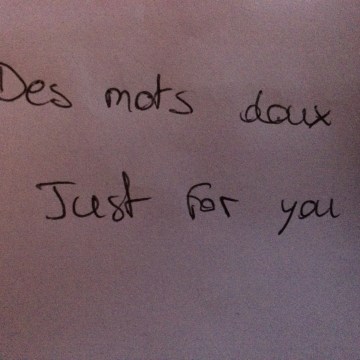 Des mots doux
Just for you